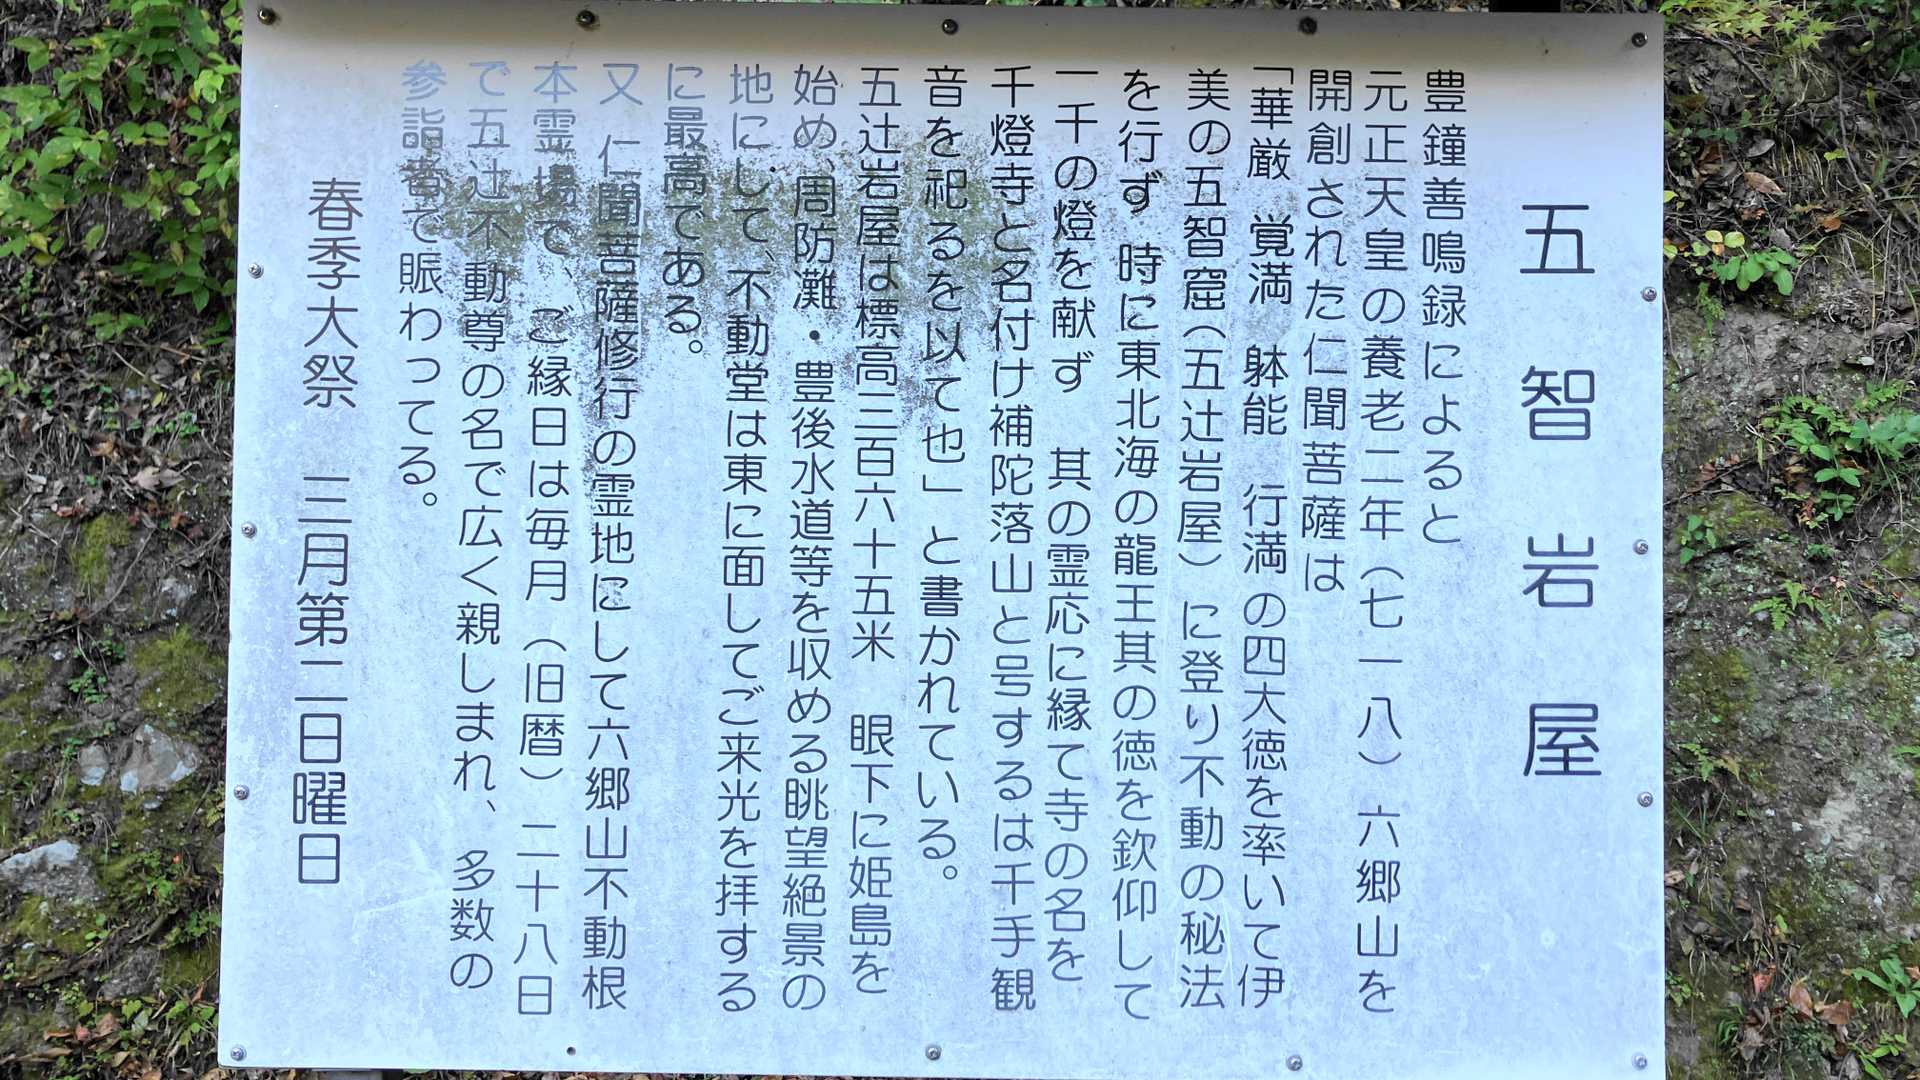 五智岩屋
豊鐘善鳴録によると
元正天皇の養老二年（七一八）六郷山を
開創された仁聞菩薩は
「華厳　覚満　躰能　行満の四大徳を率いて伊
美の五智窟（五辻岩屋）に登り不動の秘法
を行ず　時に東北海の龍王其の徳を欽仰して
一千の燈を献ず　其の霊応に縁て寺の名を
千燈寺と名付け補陀落山と号するは千手観
音を祀るを以て也」と書かれている。
五辻岩屋は標高三百六十五米　眼下に姫島を
始め、周防灘・豊後水道等を収める眺望絶景の
地にして、不動堂は東に面してご来光を拝する
に最高である。
又　仁聞菩薩修行の霊地にして六郷山不動根
本霊場で、ご縁日は毎月（旧暦）二十八日
で五辻不動尊の名で広く親しまれ、多数の
参詣者で賑わってる。
春季大祭　三月第二日曜日